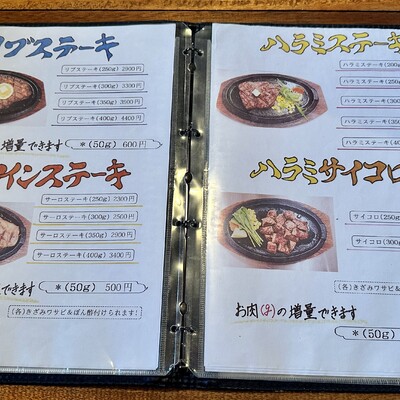 リブステーキ
リブステーキ(250g) 2800円
リブステーキ(300g) 3300円
リブステーキ(350g) 3800円
リブステーキ(400g) 4400円
増量できます
*(50g) 600円
インステーキ
サーロステーキ(250g) 2300円
サーロステーキ(300g) 2500円
サーロステーキ(350g) 2900円
サーロステーキ(400g) 3400円
できます
*(50g) 500円
(各)きざみワサビ&ぽん酢付けられます!
ハラミステーキ
ハラミステーキ(200g
ハラミステーキ(250g
ハラミステーキ(300
ハラミステーキ(350
ハラミステーキ(400
ハラミサイコロ
サイコロ(250g
サイコロ(300g
(各)きざみワサビ&
お肉の増量できます
*(50g)